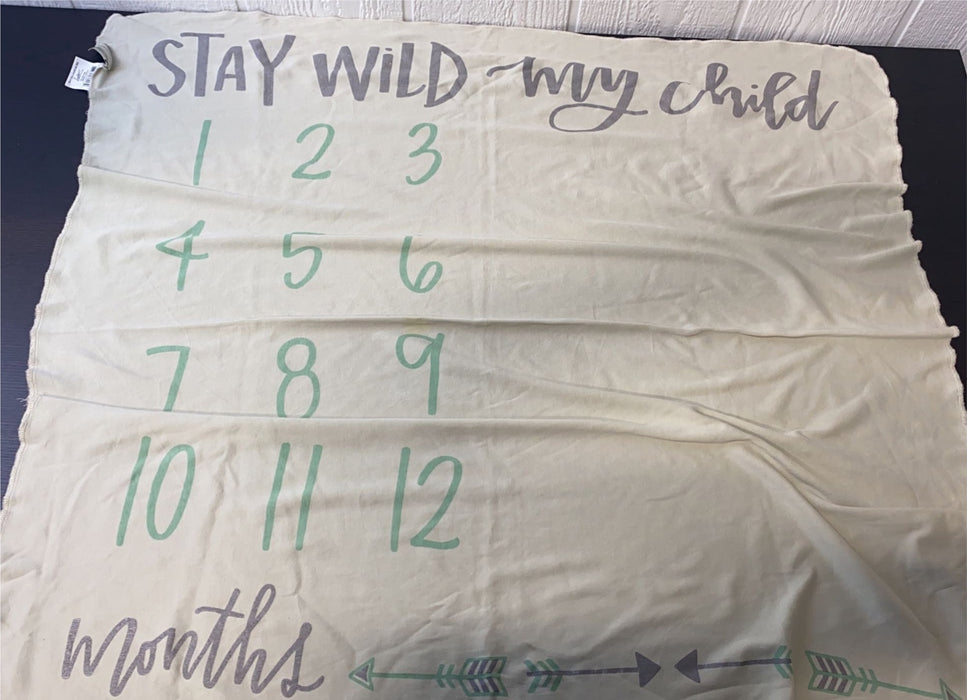 STAY WiLD my child
1 2 3
4 5 6
7 8 9
10 11 12
months